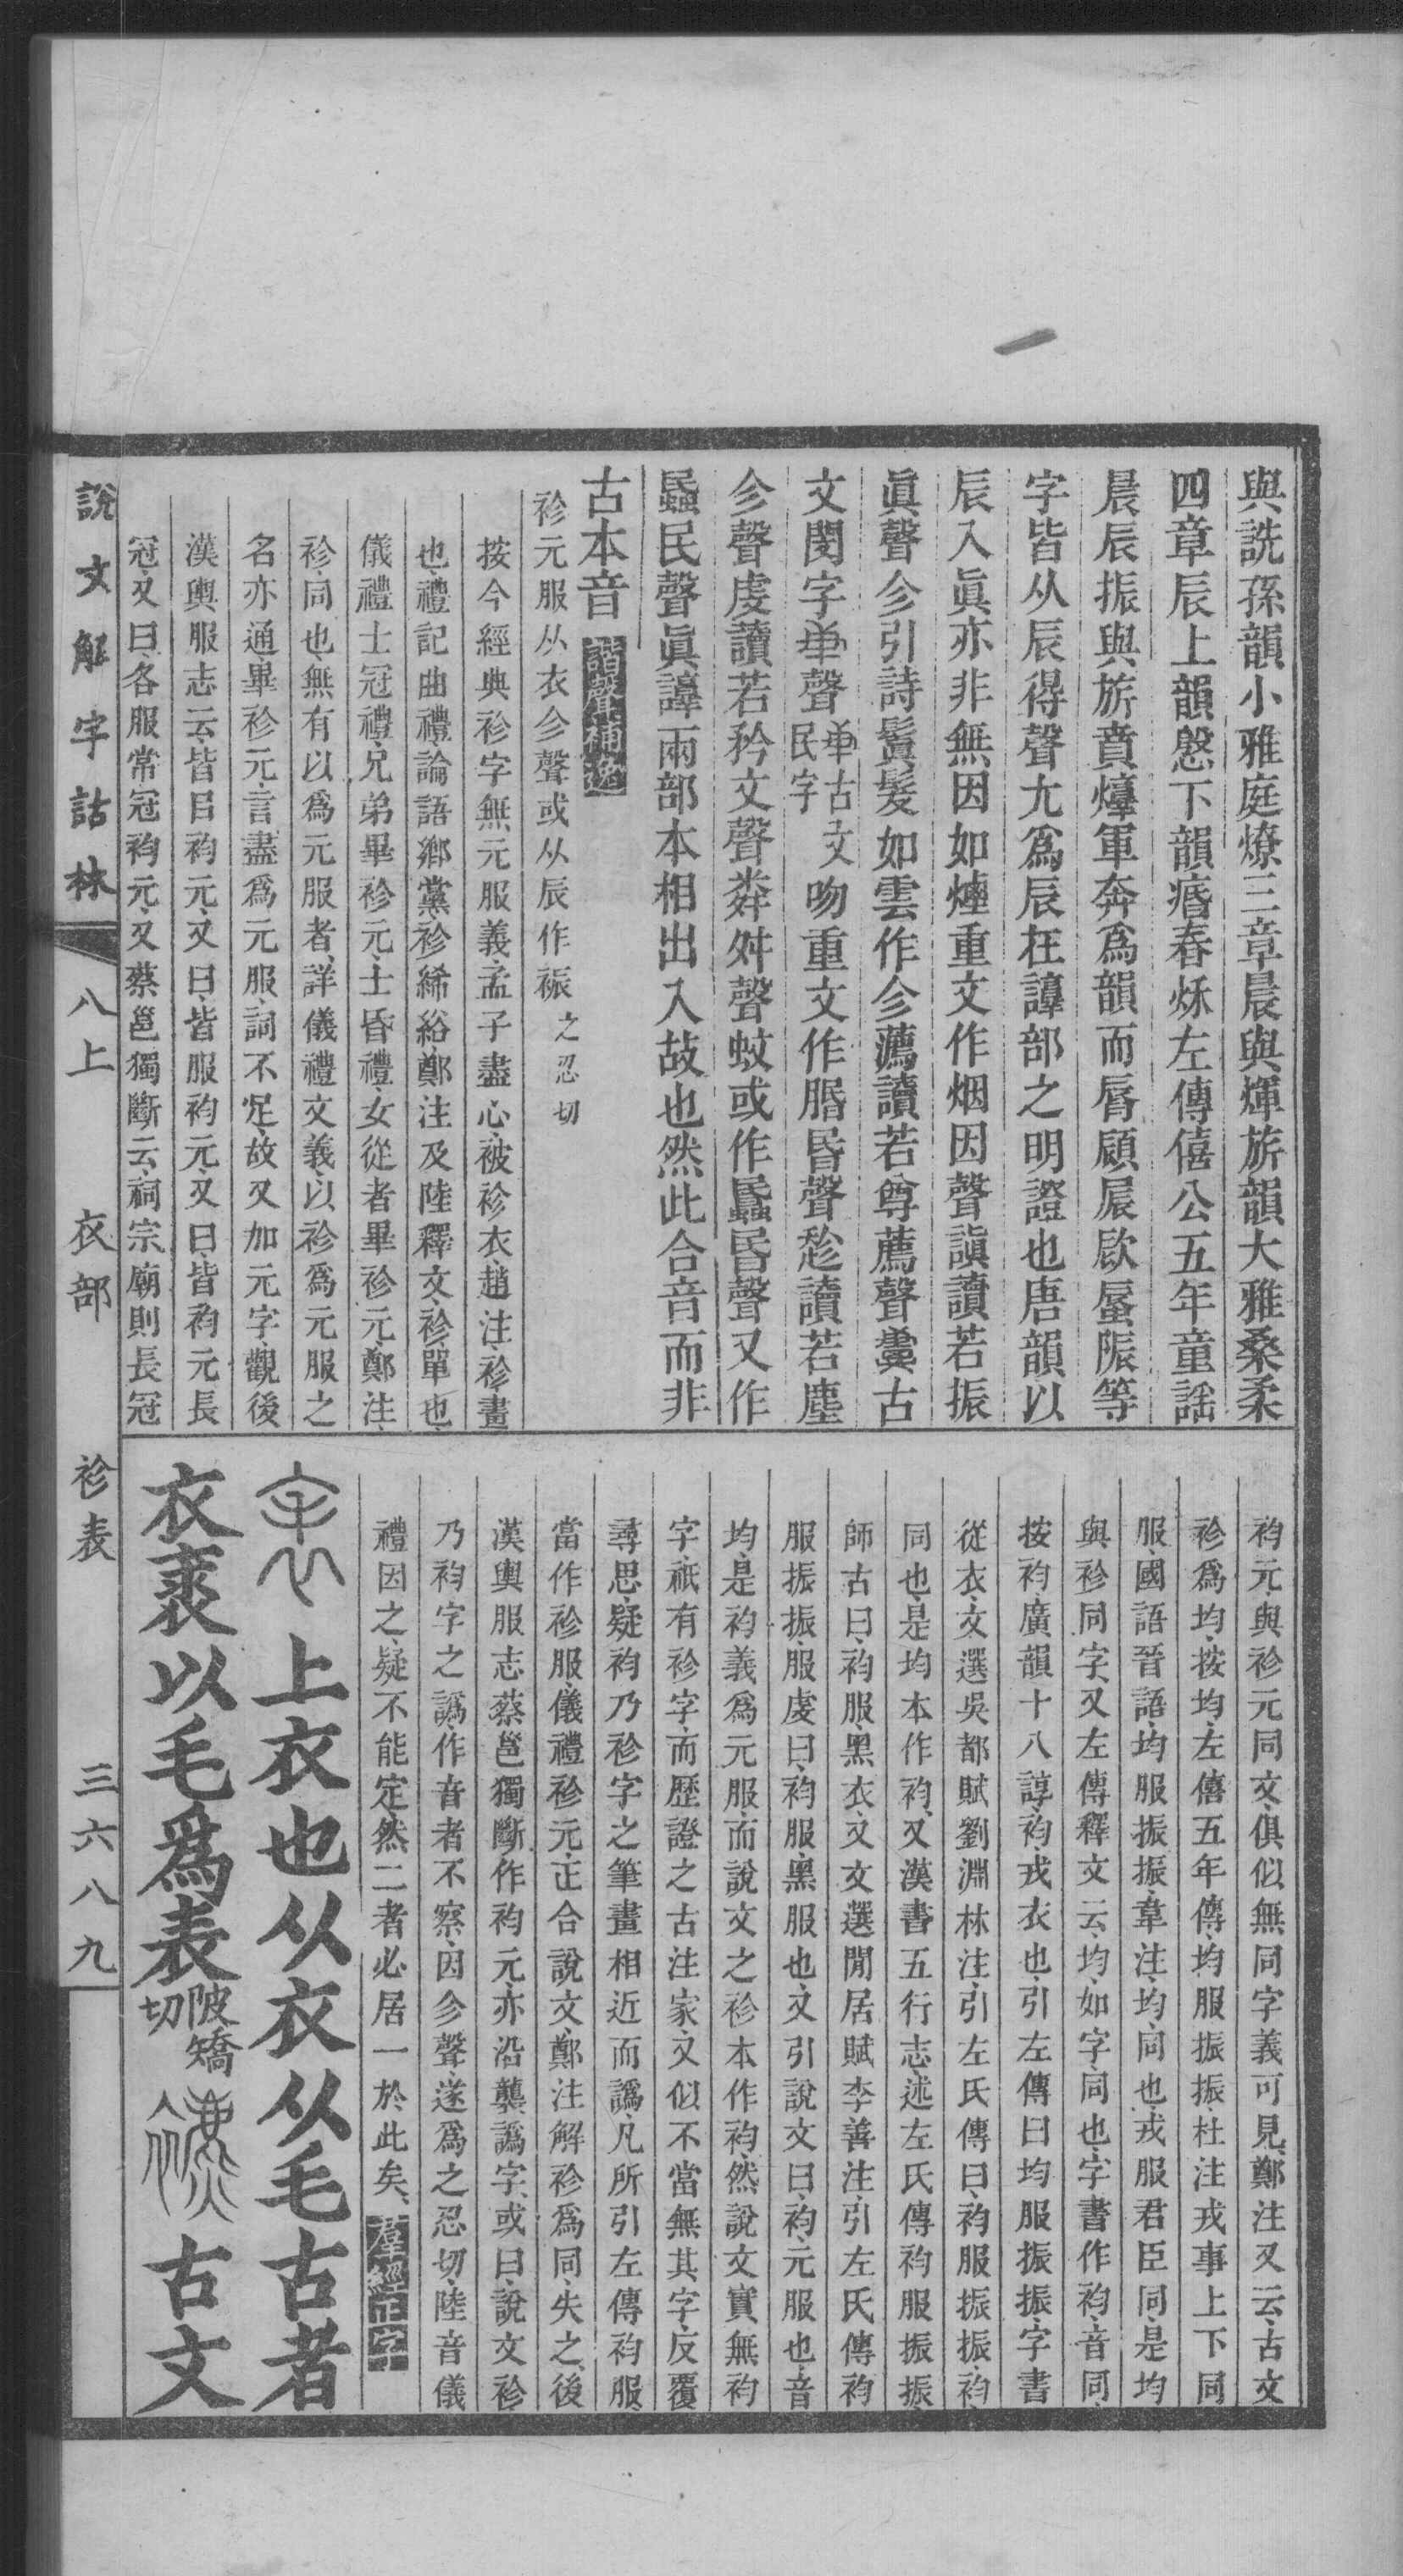 與詵孫韻小雅庭燎三章晨與煇旂韻大雅桑柔
四章辰上韻慇下韻痻春秌左傳僖公五年童謡
晨辰振與旂賁焞軍奔爲韻而脣顧㞡歂蜃陙等
字皆从辰得聲尢爲辰在諄部之明證也唐韻以
辰入眞亦非無因如煙重文作烟因聲謓讀若振
眞聲㐱引詩鬒髮如雲作㐱薦讀若尊薦聲䡅古
文閔字聲古文民字文吻重文作脗昬聲趁讀若塵
㐱聲虔讀若矜文聲粦舛聲蚊或作蟁昬聲又作
蟁民聲眞諄兩部本相出入故也然此合音而非
古本音 諧聲補逸
袗元服从衣㐱聲或从辰作裖之忍切
按今經典袗字無元服義孟子盡心被袗衣趙注袗畫
也禮記曲禮論語鄉黨袗絺綌鄭注及陸釋文袗單也
儀禮士冠禮兄弟畢袗元士昏禮女從者畢袗元鄭注
袗同也無有以爲元服者詳儀禮文義以袗爲元服之
名亦通畢袗元言盡爲元服詞不足故又加元字觀後
漢輿服志云皆㠯袀元又曰皆服袀元又曰皆袀元長
冠又曰各服常冠袀元又蔡邕獨斷云祠宗廟則長冠
袀元與袗元同文俱似無同字義可見鄭注又云古文
袗爲均按均左僖五年傳均服振振杜注戎事上下同
服國語晉語均服振振韋注均同也戎服君臣同是均
與袗同字又左傳釋文云均如字同也字書作袀音同
按袀廣韻十八諄袀戎衣也引左傳曰均服振振字書
從衣文選吳都賦劉淵林注引左氏傳曰袀服振振袀
同也是均本作袀又漢書五行志述左氏傳袀服振振
師古曰袀服黑衣又文選閒居賦李善注引左氏傳袀
服振振服虔曰袀服黑服也又引說文曰袀元服也音
均是袀義爲元服而說文之袗本作袀然說文實無袀
字祇有袗字而歷證之古注家又似不當無其字反覆
尋思疑袀乃袗字之筆畫相近而譌凡所引左傳袀服
當作袗服儀禮袗元正合說文鄭注解袗爲同失之後
漢輿服志蔡邕獨斷作袀元亦沿襲譌字或曰說文袗
乃袀字之譌作音者不察因㐱聲遂爲之忍切陸音儀
禮因之疑不能定然二者必居一於此矣 羣經正字
上衣也从衣从毛古者
衣裘以毛爲表陂矯切 古文
說文解字詁林 八上 衣部 袗表 三六八九